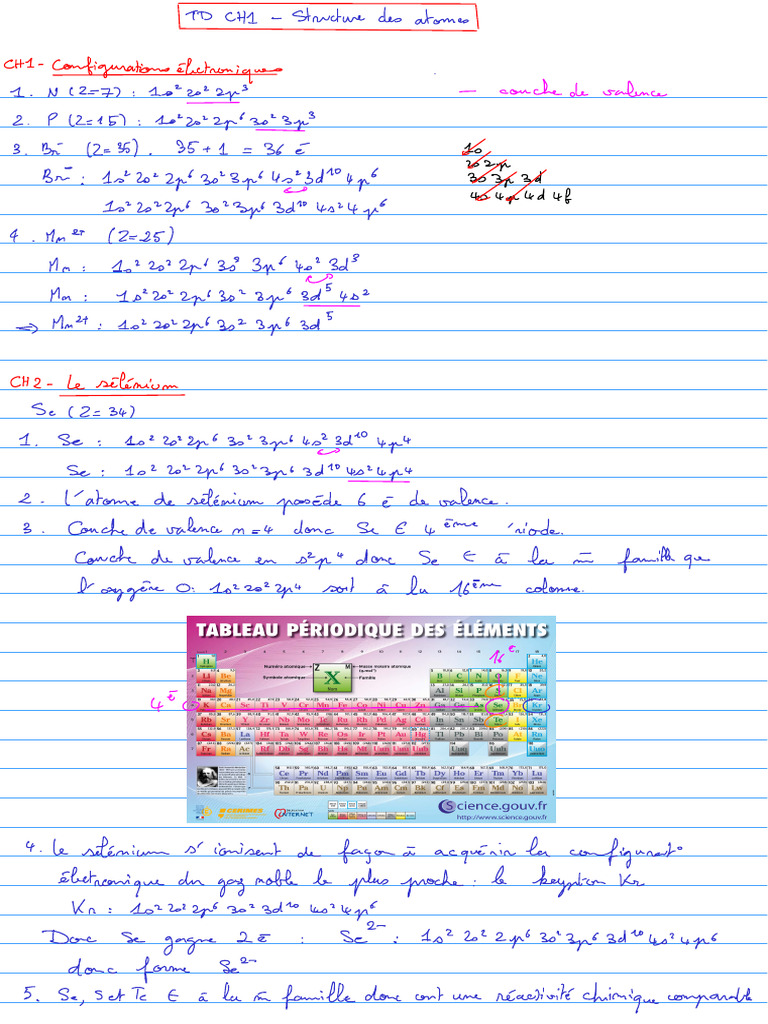 TD CH1 - Structure des atomes
CH1 - Configurations électroniques
1. N (Z=7) : 1s² 2s² 2p³
— couche de valence
2. P (Z=15) : 1s² 2s² 2p⁶ 3s² 3p³
3. Br⁻ (Z=35). 35+1 = 36 é
Br⁻ : 1s² 2s² 2p⁶ 3s² 3p⁶ 4s² 3d¹⁰ 4p⁶
1s² 2s² 2p⁶ 3s² 3p⁶ 3d¹⁰ 4s² 4p⁶
1s
2s 2p
3s 3p 3d
4s 4p 4d 4f
4. Mn²⁺ (Z=25)
Mn : 1s² 2s² 2p⁶ 3s² 3p⁶ 4s² 3d
Mn : 1s² 2s² 2p⁶ 3s² 3p⁶ 3d⁵ 4s²
=> Mn²⁺ : 1s² 2s² 2p⁶ 3s² 3p⁶ 3d⁵
CH2 - Le sélénium
Se (Z=34)
1. Se : 1s² 2s² 2p⁶ 3s² 3p⁶ 4s² 3d¹⁰ 4p⁴
Se : 1s² 2s² 2p⁶ 3s² 3p⁶ 3d¹⁰ 4s² 4p⁴
2. L'atome de sélénium possède 6 é de valence.
3. Couche de valence n=4 donc Se ∈ 4ème riode.
Couche de valence en s²p⁴ donc Se ∈ à la m̄ famille que
l'oxygène O : 1s² 2s² 2p⁴ soit à la 16ème colonne.
TABLEAU PÉRIODIQUE DES ÉLÉMENTS
16è
4è
Numéro atomique
Symbole atomique
Masse molaire atomique
Famille
Z M
X
H He
Li Be B C N O F Ne
Na Mg Al Si P S Cl Ar
K Ca Sc Ti V Cr Mn Fe Co Ni Cu Zn Ga Ge As Se Br Kr
Rb Sr Y Zr Nb Mo Tc Ru Rh Pd Ag Cd In Sn Sb Te I Xe
Cs Ba La Hf Ta W Re Os Ir Pt Au Hg Tl Pb Bi Po At Rn
Fr Ra Ac Rf Db Sg Bh Hs Mt
Ce Pr Nd Pm Sm Eu Gd Tb Dy Ho Er Tm Yb Lu
Th Pa U Np Pu Am Cm Bk Cf Es Fm Md No Lr
CERIMES
INTERNET
Science.gouv.fr
http://www.science.gouv.fr
4. Le sélénium s'ionisent de façon à acquérir la configurat°
électronique du gaz noble le plus proche : le krypton Kr
Kr : 1s² 2s² 2p⁶ 3s² 3d¹⁰ 4s² 4p⁶
Donc Se gagne 2 é : Se²⁻ : 1s² 2s² 2p⁶ 3s² 3p⁶ 3d¹⁰ 4s² 4p⁶
donc forme Se²⁻
5. Se, S et Te ∈ à la m̄ famille donc ont une réactivité chimique comparable